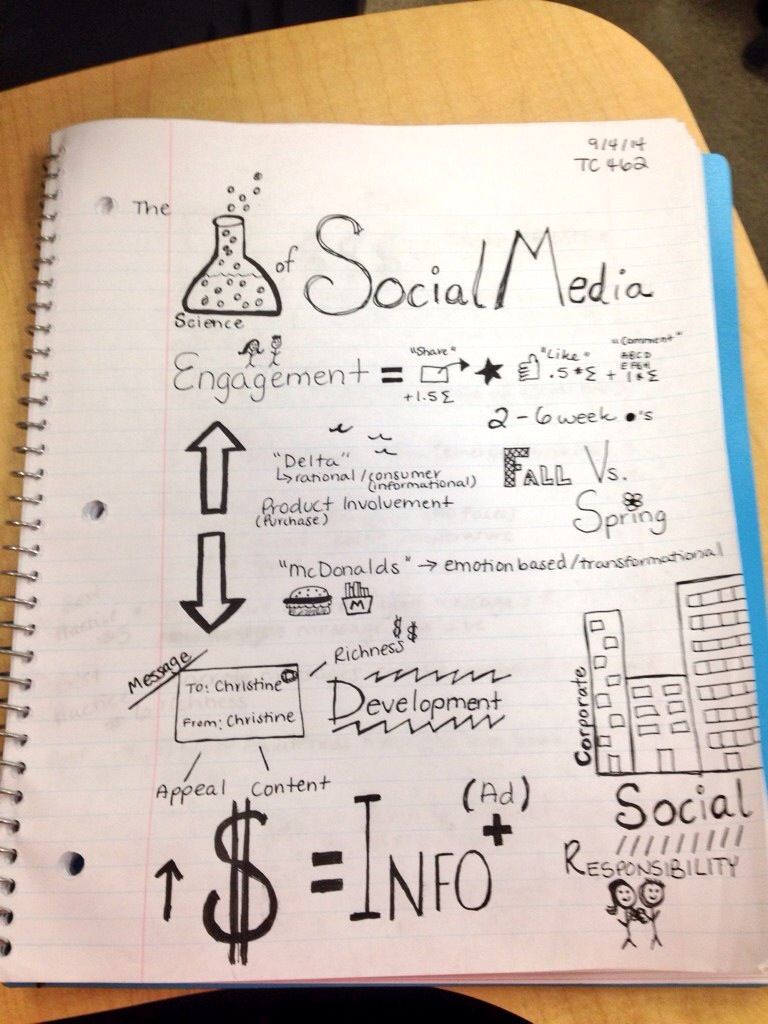 9/4/14
TC 462
The
Science
of Social Media
Engagement = "Share" +1.5 Σ "Like" .5 * Σ + "Comment" ABCD EFGH 1 * Σ
2-6 week •'s
"Delta"
↳ rational/consumer
(informational)
Product Involvement
(Purchase)
Fall Vs.
Spring
"mcDonalds" → emotion based/transformational
M
Message
To: Christine
From: Christine
Richness $$
Development
Appeal Content
Corporate
Social
Responsibility
↑ $ = Info + (Ad)